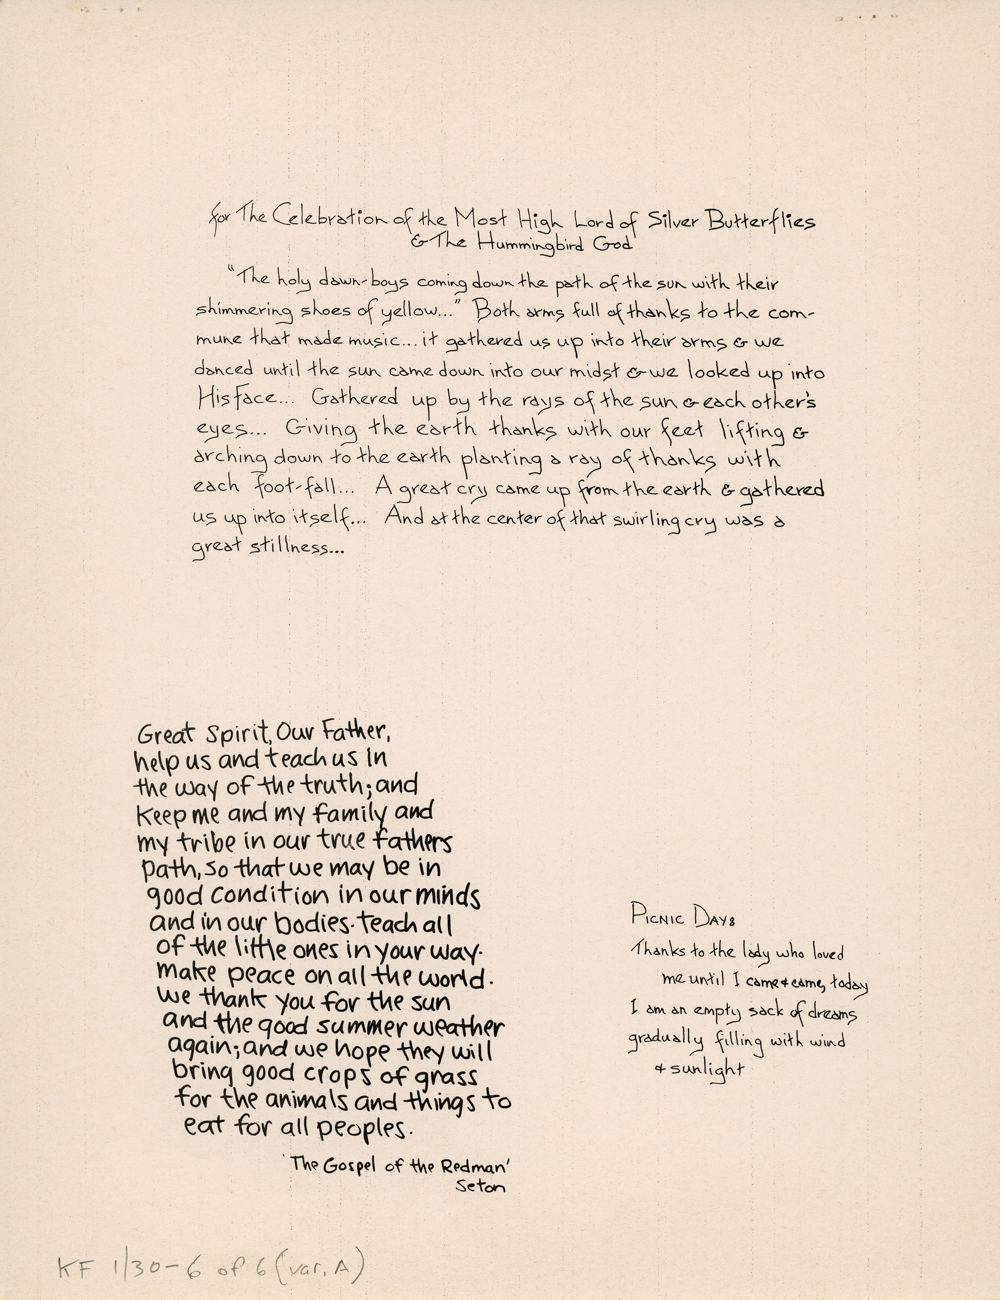 for The Celebration of the Most High Lord of Silver Butterflies
& The Hummingbird God
"The holy dawn-boys coming down the path of the sun with their
shimmering shoes of yellow..." Both arms full of thanks to the com-
mune that made music... it gathered us up into their arms & we
danced until the sun came down into our midst & we looked up into
His Face... Gathered up by the rays of the sun & each other's
eyes... Giving the earth thanks with our feet lifting &
arching down to the earth planting a ray of thanks with
each foot-fall... A great cry came up from the earth & gathered
us up into itself... And at the center of that swirling cry was a
great stillness...
Great Spirit, Our Father,
help us and teach us in
the way of the truth; and
keep me and my family and
my tribe in our true fathers
path, so that we may be in
good condition in our minds
and in our bodies. teach all
of the little ones in your way.
make peace on all the world.
we thank you for the sun
and the good summer weather
again; and we hope they will
bring good crops of grass
for the animals and things to
eat for all peoples.
'The Gospel of the Redman'
Seton
PICNIC DAYS
Thanks to the lady who loved
me until I came & came, today
I am an empty sack of dreams
gradually filling with wind
& sunlight
KF 1/30-6 of 6 (var. A)